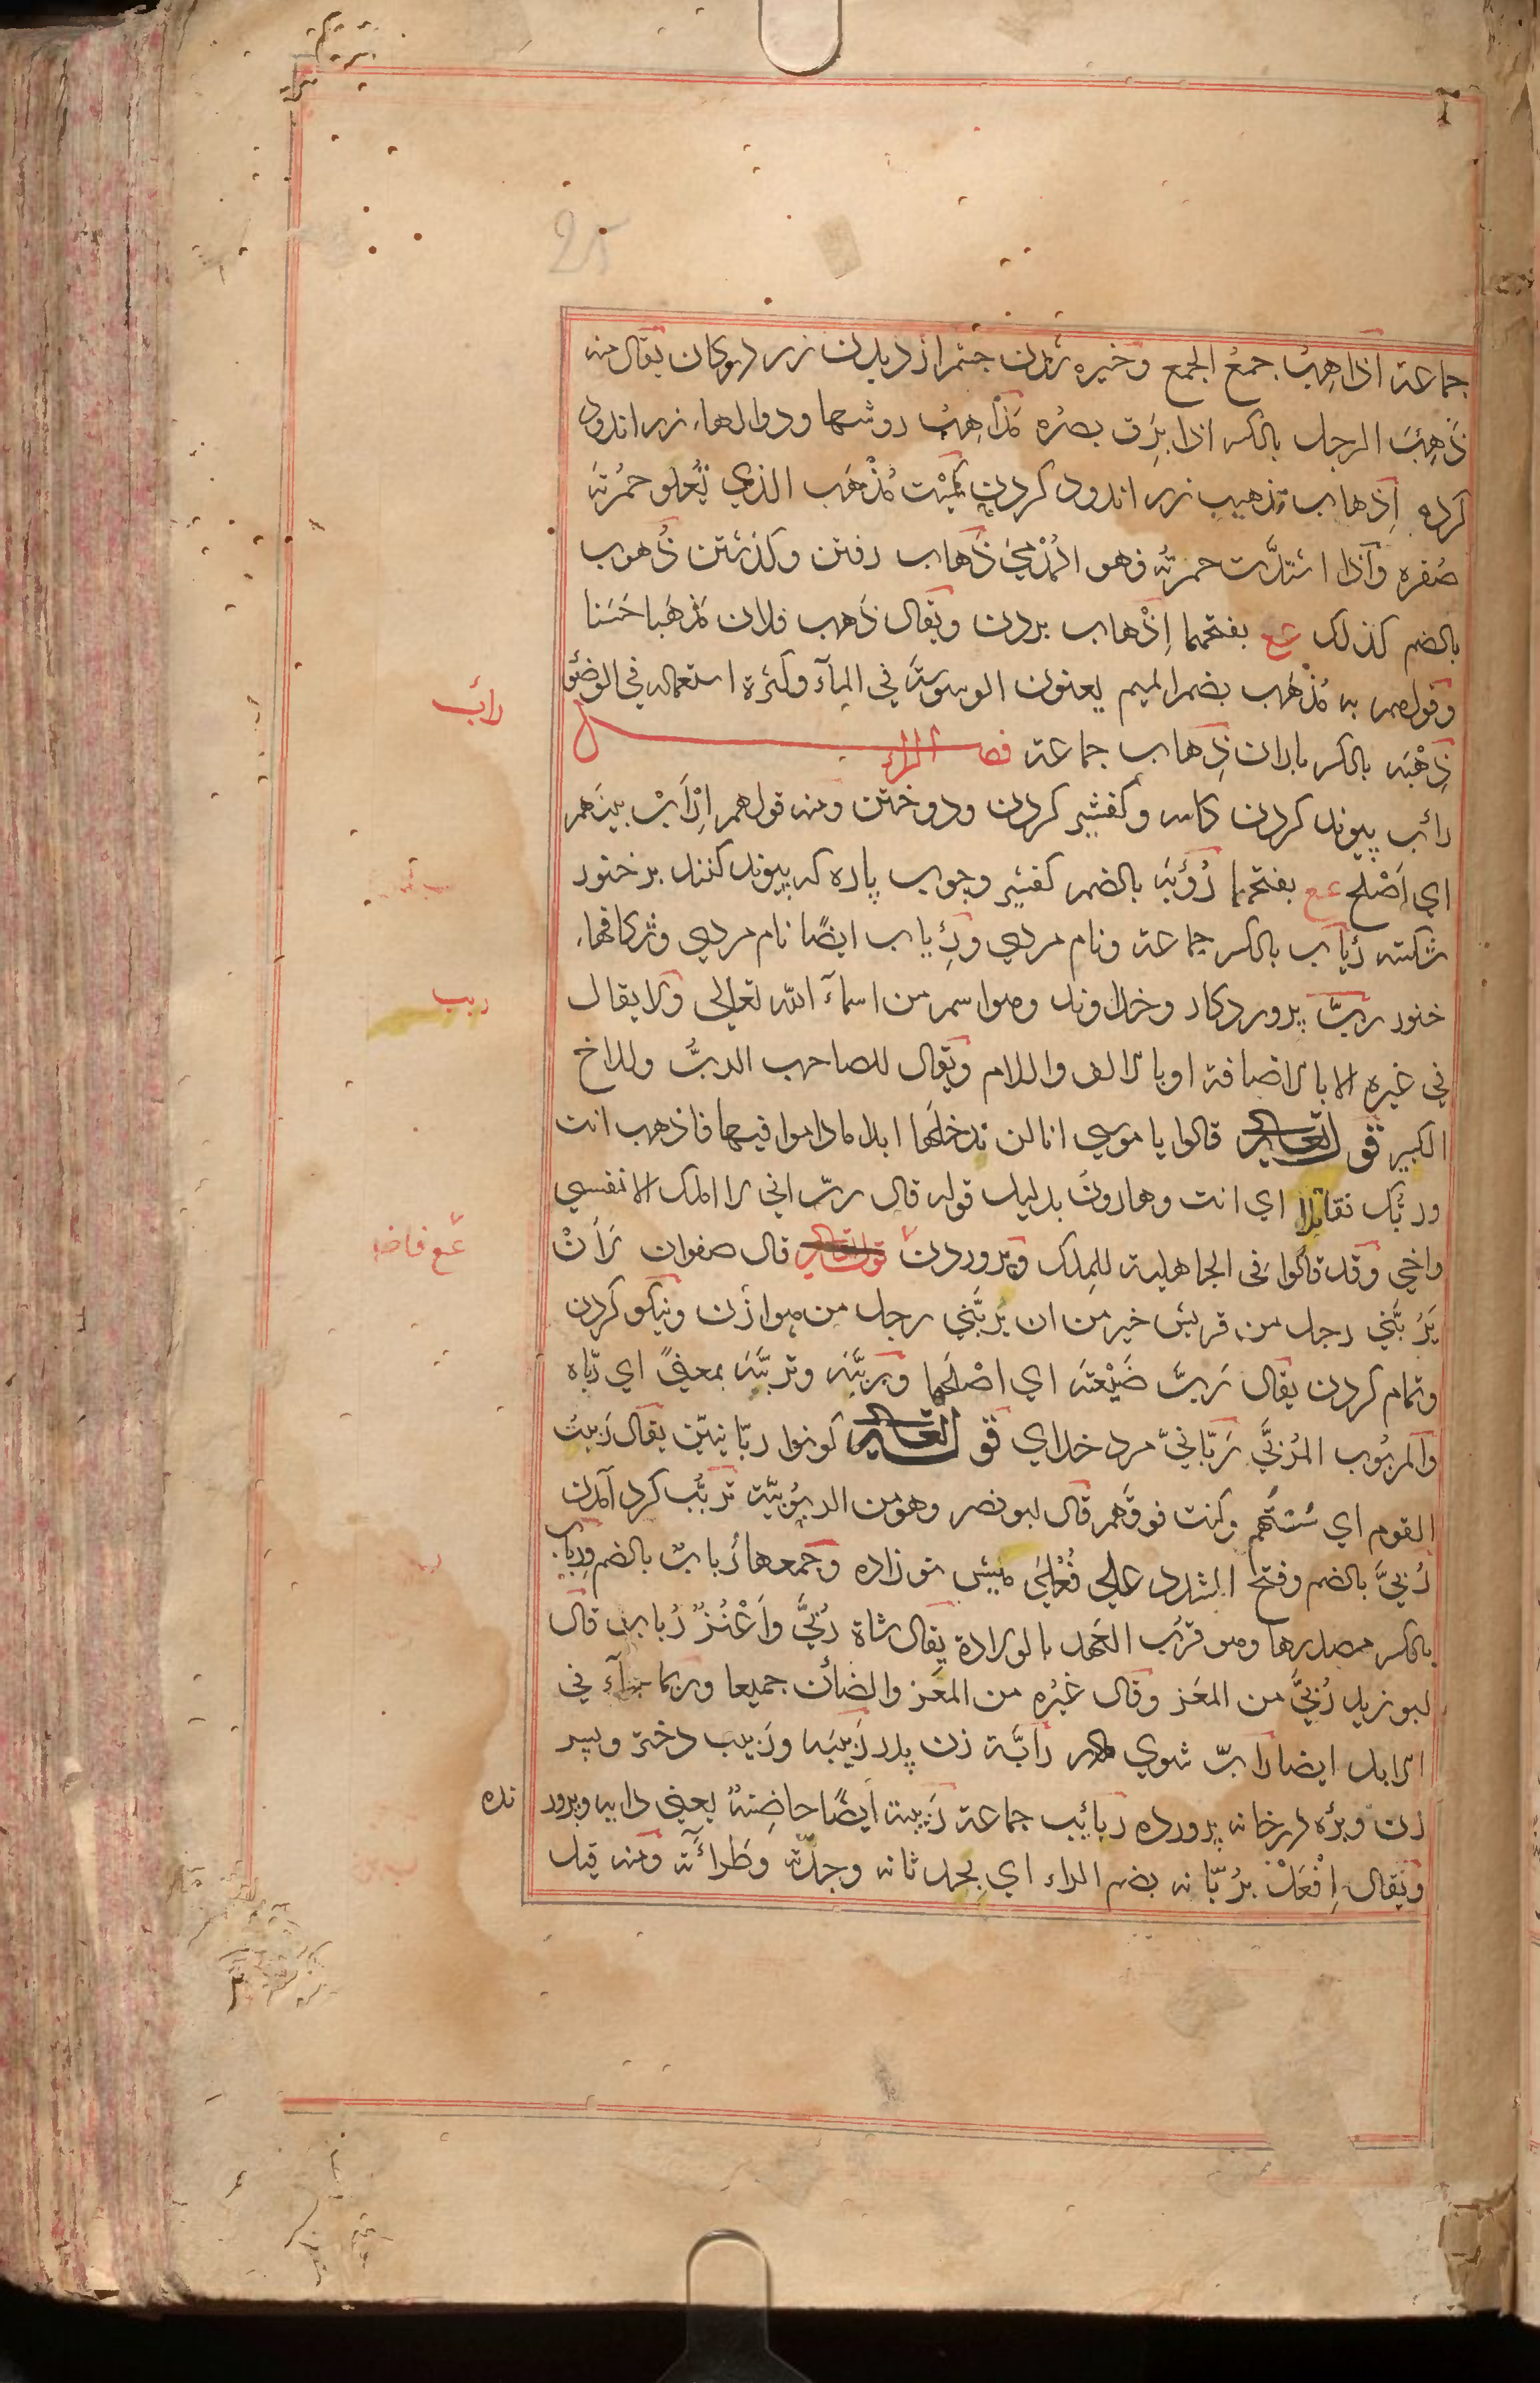 25
جماعة اذاهِيبُ جمعُ الجمع وخيره شدن چشم از ديدن زر در كان يقال منه
ذَهِبَ الرجل بالكسر اذا بَرِق بصرُه مَذاهِبُ روشها ودوالهاء زر اندود
كرده اِذهاب تذهيب زر اندود كردن كُمَيْت مُذْهَب الذي تَعلو حمُرتَه
صُفره واذا اشتدَّت حمرتُه فهو المُدْمَىٰ ذَهاب رفتن وكذشتن ذُهوب
بالضم كذلك عع بفتحهما اِذْهاب بردن ويقال ذَهب فلان مَذهَبا حَسَنا
وقولهم به مُذْهَب بضم الميم يعنون الوسوسَة في المآء وكثرة استعماله في الوضؤ
ذِهْبَه بالكسر باران ذِهاب جماعة فصل الراء
رائب
رائب پيوند كردن كاسه وكفشير كردن ودوختن ومنه قولهم اِرْاَبْ بينهم
اي اَصْلح عع بفتحهما رُؤبَه بالضم كفشير وچوب پاره كه پيوند كنند بر خنور
شكسته رِئاب بالكسر جماعة ونام مردي ورِئاب ايضًا نام مردي وشكافهاء
خنور ربَّ پروردكار وخداوند وهو اسم من اسمآء الله تعالي ولا يقال
ربب
في غيره الا بالاضافة او بالالف واللام ويقال للصاحب الربُّ وللاخ
الكبير قوله تعالي قالوا يا موسي انا لن ندخلَها ابدا ما داموا فيها فاذهب انت
وربُّك فقاتلا اي انت وهارونُ بدليل قوله قال ربّ اني لا املك الا نفسي
واخي وقد قالوا في الجاهلية للمِلك وپروردن قال صفوان لَأَنْ
عع فاضـ
يَرُبَّني رجل من قريش خير من ان يَرُبَّني رجل من هوازن ونيكو كردن
وتمام كردن يقال رَبَّ ضَيْعتَه اي اصْلَحها ورببَّه وتربَّبَه بمعنيً اي ربّاه
والمربُوب المُرَبَّى رَبّانيّ مرد خداي قوله تعالي كونوا ربّانيّين يقال رَبَبتُ
القوم اي سُسْتُهم وكنت فوقَهم قال ابو نصر وهو من الربوُبيّة تَربُّب كرد آمدن
رُبَّىٰ بالضم وفتح المشدد علي فُعْلىٰ ميش نو زاده وجمعها رُبابٌ بالضم ورِباب
بالكسر مصدرها وهو قرُب العَهد بالولادة يقال شاة رُبَّى واَعْنُزٌ رُبابٌ قال
ابو زيد رُبَّى من المعَز وقال غيرُه من المعَز والضأن جميعا وربما جآء في
الابل ايضا رابّ شوي مادر رابَّة زن پدر رَبِيبَه ورَبيب دختر وپسر
زن وبرّه در خانه پرورده رَبائِب جماعة رَبيبة ايضًا حاضِنةٌ يعني دايه وپرور
نده
ويُقال اِفْعَلْ بُربّانه بضم الراء اي بحدثانه وجِدَّته وطَرائَتِه ومنه قيل